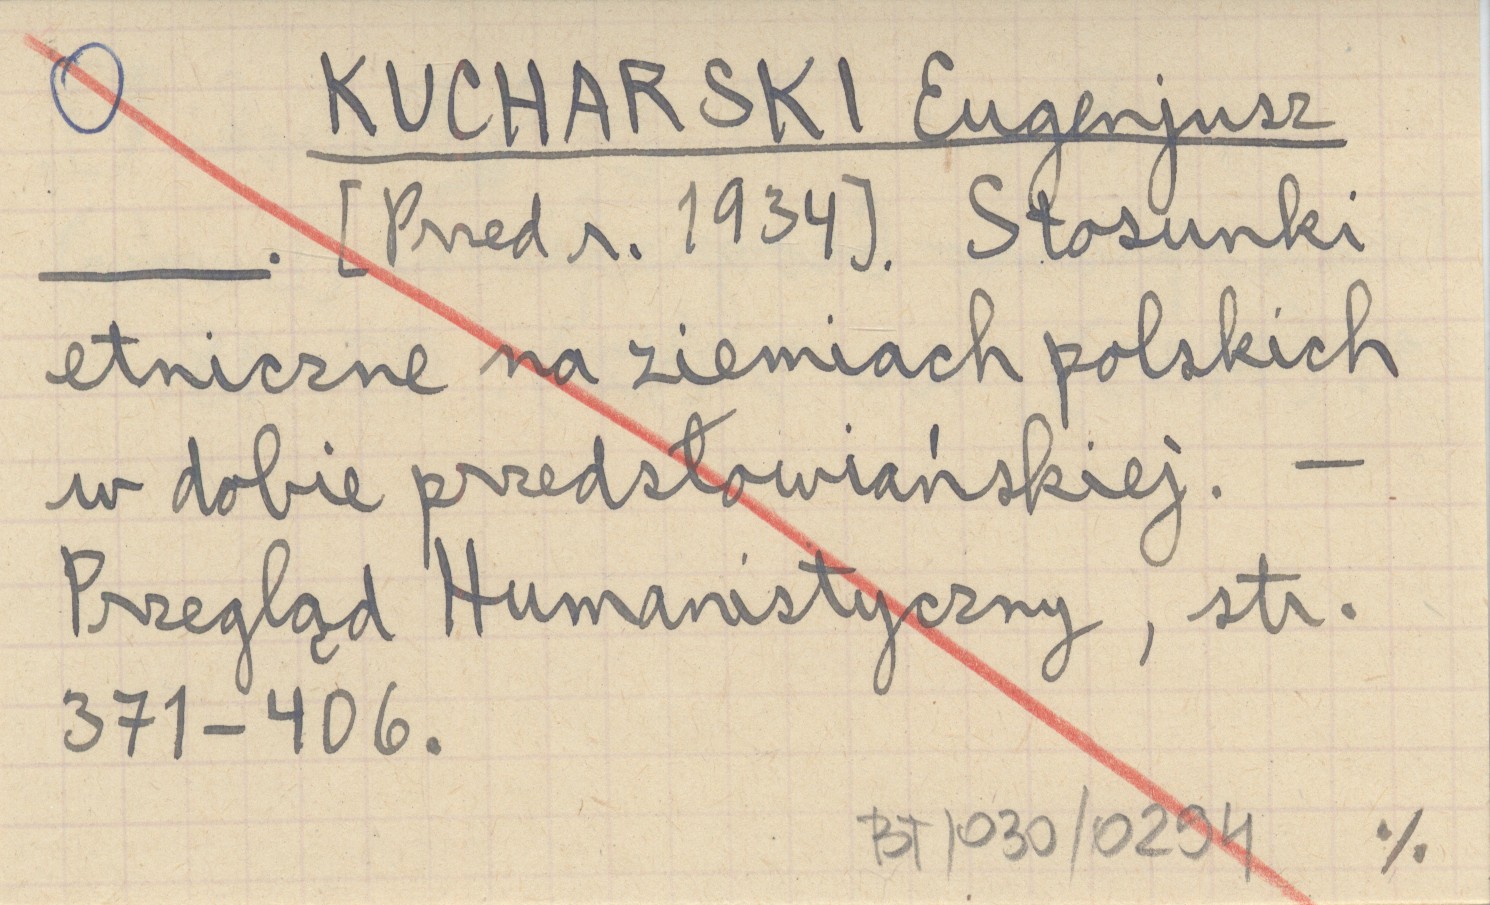 KUCHARSKI Eugenjusz
____. [Przed r. 1934]. Stosunki
etniczne na ziemiach polskich
w dobie przedsłowiańskiej. —
Przegląd Humanistyczny, str.
371-406.
BT/030/0294 ·/.